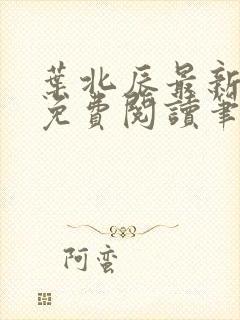 葉北辰最新
免費閱讀筆
阿蛮